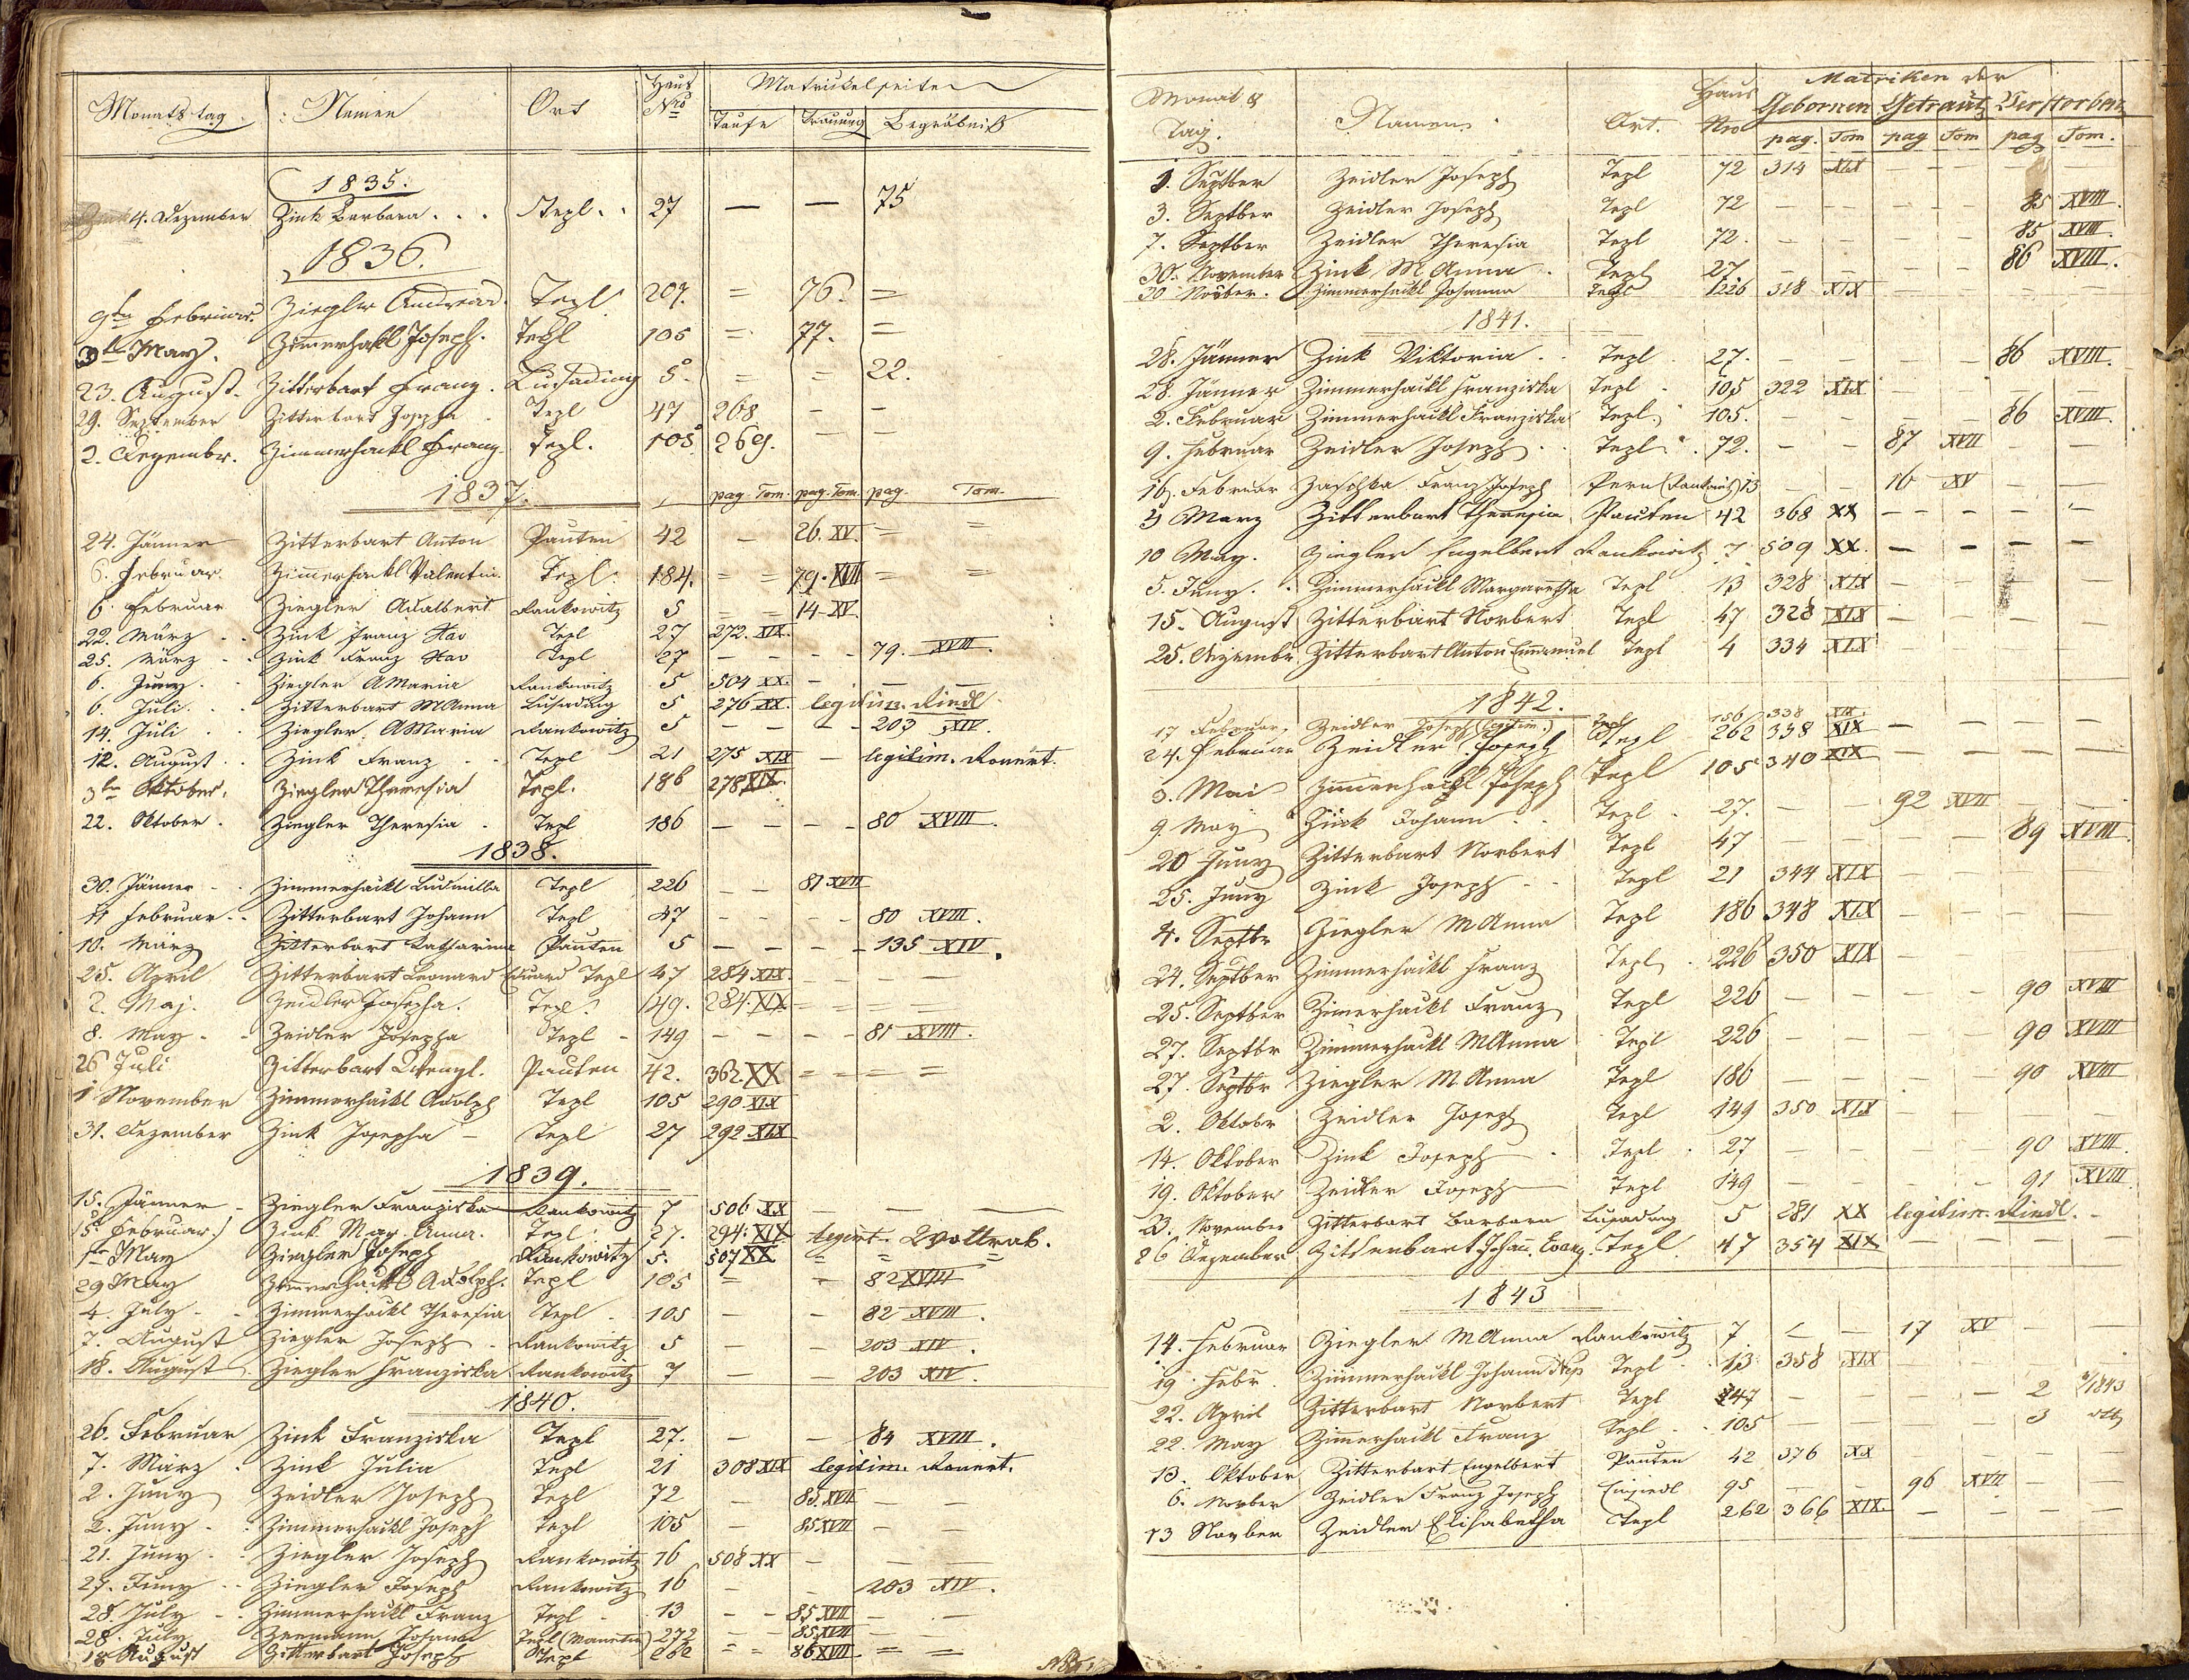 Monatstag Namen Ort Haus Nro Matrikelseiten
Taufe Trauung Begräbniß
1835.
4. Dezember Zink Barbara . . . Tepl. . 27 — — 75
1836.
9ten Februar. Ziegler Andreas. Tepl. 207. = 76. =
3te May. Zimmerhakl Joseph. Tepl 105 = 77. =
23. August. Zitterbart Franz. Lusading 5. = = 22.
29. September Zitterbart Josepha Tepl 47 268 — —
2. Dezembr. Zimmerhackl Franz. Tepl. 105. 269. — —
1837. pag. Tom. pag. Tom. pag. Tom.
24. Jänner Zitterbart Anton Pauten 42 — 26. XV. = =
6. Februar. Zimmerhackl Valentin. Tepl. 184. = = 79. XVII = =
6. Februar Ziegler Adalbert. Rankowitz 5 = = 14 XV.
22. März . . Zink Franz Xav Tepl 27 272. XIX.
25. März - . Zink Franz Xav Tepl 27 — — — - 79. XVIII.
6. Juny. . Ziegler AMaria Rankowitz 5 504 XX. — — —
6. Juli. . Zitterbart MAnna Lusading 5 276 XX. legitim. Riedl.
14. Juli . . Ziegler. AMaria Rankowitz 5 — — — - 203 XIV.
12. August . . Zink Franz - . Tepl 21 275 XIX — legitim. Konert.
3te Oktober. Ziegler Theresia Tepl. 186 278 XIX.
22. Oktober . Ziegler Theresia . Tepl 186 — — — - 80 XVIII.
1838.
30. Jänner - . Zimmerhäckl Ludmilla Tepl 226 — — 81 XVII
11 Februar. . Zitterbart Johann Tepl 47 — — — - 80 XVIII.
10. März Zitterbart Katharina Pauten 5 — — — - 135 XIV.
25. April Zitterbart Leonard Eduard Tepl 47 284 XIX. — — — —
2. Maj. Zeidler Josepha. Tepl. 149. 284. XIX = = = =
8. May - - Zeidler Josepha Tepl - 149 — — — - 81 XVIII.
26 Juli Zitterbart Wenzl. Pauten 42. 362. XX = = = =
1 November Zimmerhackl Adolph Tepl 105 290 XIX
31. Dezember Zink Josepha - Tepl 27 292 XIX
1839.
15. Jänner - Ziegler Franziska Rankowitz 7 506 XX — — —
15. Februar. Zink Mar. Anna. Tepl. 27. 294. XIX legit. Wollrab.
1te May Ziegler Joseph Rankowitz 5. 507 XX = = =
29 May Zimmerhackl Adolph. Tepl 105 = = 82 XVIII
4. July - - Zimmerhackl Theresia Tepl . 105 — — 82 XVIII.
7. August Ziegler Joseph - Rankowitz 5 — — 203 XIV.
18. August Ziegler Franziska Rankowitz 7 — — 203 XIV.
1840.
26. Februar Zink Franziska Tepl 27. — — 84 XVIII.
7. März . Zink Julia Tepl 21 308 XIX legitim. Konert.
2. Juny Zeidler Joseph Tepl 72 — 85. XVII — —
2. Juny - . Zimmerhackl Joseph Tepl 105 — 85 XVII — —
21. Juny - . Ziegler Joseph Rankowitz 16 508 XX — — —
27. Juny - . Ziegler Joseph Rankowitz 16 — — 203 XIV.
28. July - . Zimmerhackl Franz Tepl - 13 — — 85 XVII — —
28. July Johann Tepl 272 — — 85 XVII — —
18 August Zitterbart Joseph Tepl 262 = = 86 XVII = =
Monat & Tag. Namen. Ort. Haus Nro Matriken der
Gebornen Getraut Verstorben
pag. Tom pag Tom pag Tom.
1. Septber Zeidler Joseph Tepl 72 314 XIX — — — —
3. Septber Zeidler Joseph Tepl 72 — — — — 85 XVIII.
7. Septber Zeidler Theresia Tepl 72. — — — — 85 XVIII.
30. November Zink M Anna . Tepl 27 — — — — 86 XVIII.
30 Novber. Zimmerhackl Johanna Tepl 226 318 XIX — — — —
1841.
28. Jänner Zink Viktoria . . Tepl . 27. — — — — 86 XVIII.
28. Jänner Zimmerhackl Franziska Tepl - 105 322 XIX — —
2. Februar Zimmerhackl Franziska Tepl. 105. — — — — 86 XVIII.
9. Februar Zeidler Joseph . . Tepl . . 72. — — 87 XVII — —
16. Februar Zaschka Franz Joseph Pern 13 — — 16 XV — —
3 März Zitterbart Theresia Pauten 42 368 XX — — — —
10 May. Ziegler Engelbert Rankowitz 7 509 XX. — — — —
5. Juny. . Zimmerhäckl Margaretha Tepl 13 328 XIX — — — —
15. August Zitterbart Norbert Tepl 47 328 XIX — — — —
25. Dezembr. Zitterbart Anton Emmanuel Tepl 4 334 XIX — — — —
1842.
17 Februar, Zeidler Joseph (legitim.) Tepl 156 338 XIX
24. Februar Zeidler Joseph Tepl 262 338 XIX — — — —
3. Mai Zimmerhackl Joseph Tepl 105 340 XIX — — — —
9. May Zink Johann . . Tepl . 27. — — 92 XVII — —
20 Juny Zitterbart Norbert Tepl 47 — — — — 89 XVIII.
25. Juny Zink Joseph - - Tepl 21 344 XIX — — — —
4. Septbr Ziegler MAnna Tepl 186 348 XIX — — — —
24. Septber Zimmerhäckl Franz Tepl . 226 350 XIX — — — —
25. Septber Zimmerhackl Franz Tepl 226 — — — — 90 XVIII
27. Septbr Zimmerhäckl MAnna Tepl 226 — — — — 90 XVIII
27. Septbr Ziegler M Anna Tepl 186 — — — — 90 XVIII
2. Oktobr Zeidler Joseph Tepl 149 350 XIX — — — —
14. Oktober Zink Joseph - Tepl . 27 — — — — 90 XVIII.
19. Oktober Zeidler Joseph Tepl 149 — — — — 91 XVIII.
23. November Zitterbart Barbara Lusading 5 281 XX legitim. Riedl. -
26 Dezember Zitterbart Johañ. Evang. Tepl. 47 354 XIX — — — —
1843
14. Februar Ziegler MAnna Rankowitz 7 — — 17 XV — —
19. Febr. Zimmerhackl Johann Nep Tepl - 13 358 XIX — — — —
22. April Zitterbart Norbert Tepl 47 — — — — 2 1843
22. May Zimmerhackl Franz Tepl . . 105 — — — — 3
13. Oktober Zitterbart Engelbert Pauten 42 376 XX — —
6. Novber Zeidler Franz Joseph Einsiedl 95 — — 96 XVII — —
13 Novber Zeidler Elisabetha Tepl 262 366 XIX. — — — —